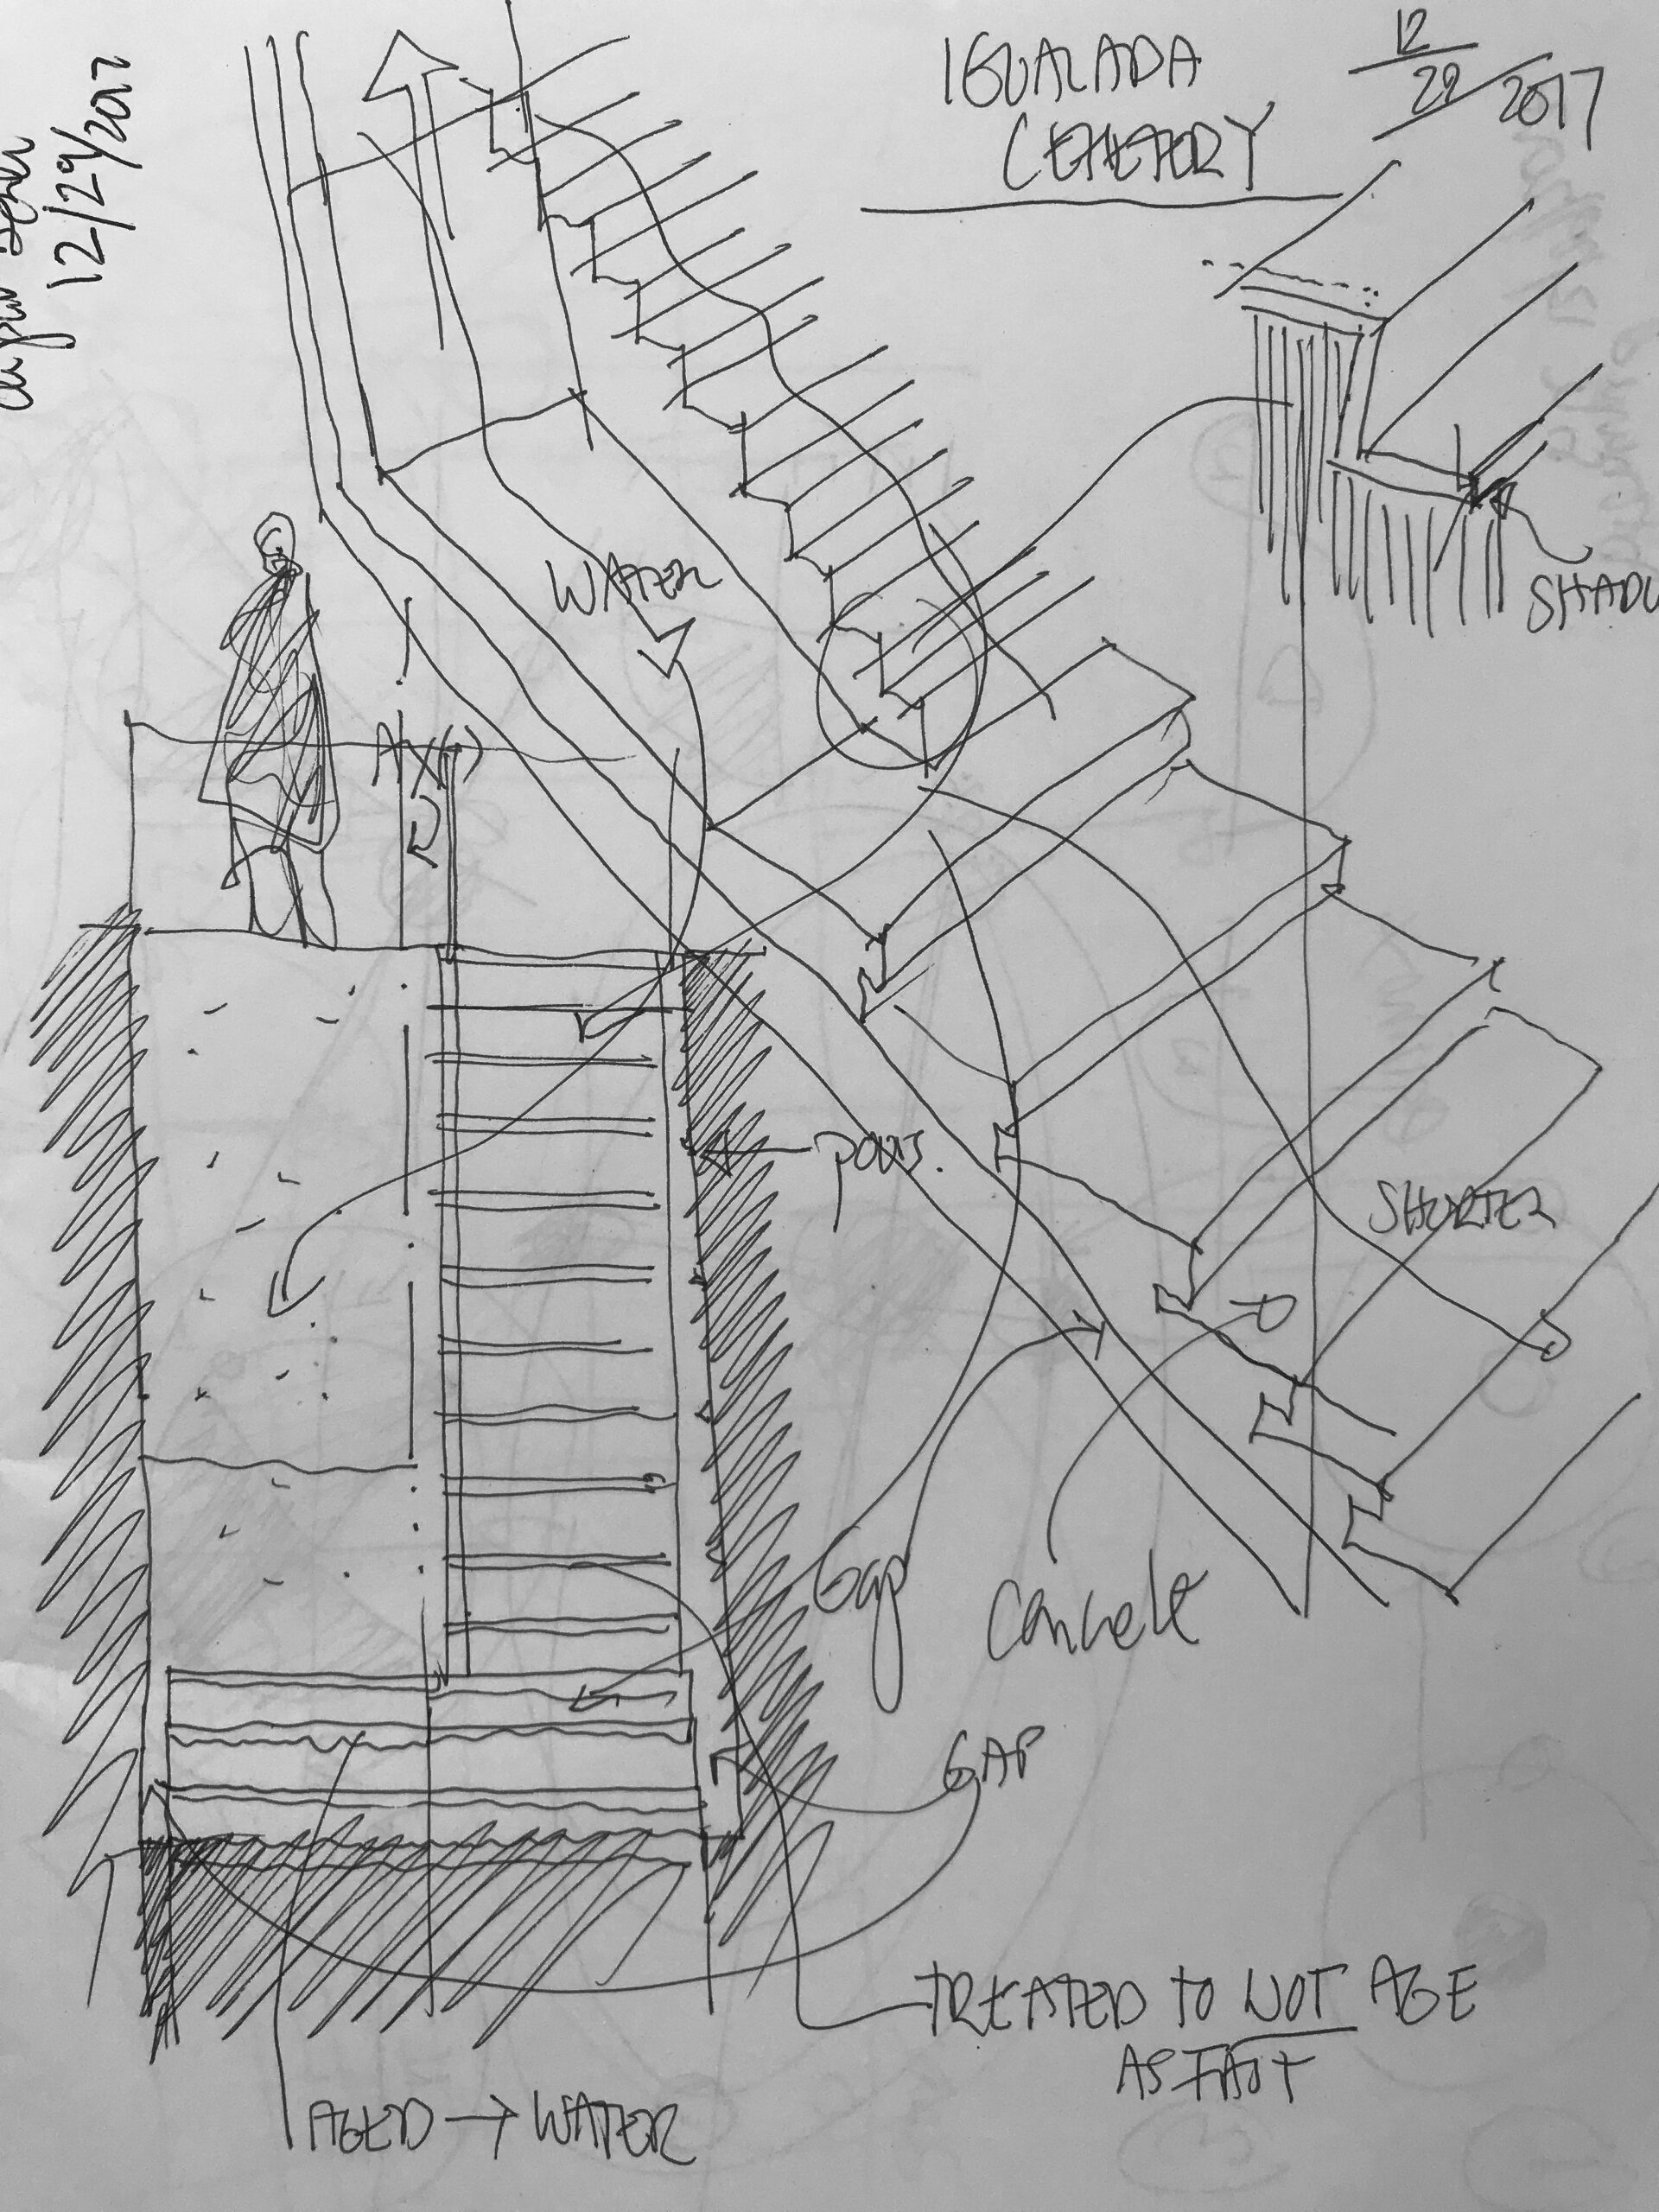 IGUALADA
CEMETERY
12/29/2017
12/29/2017
SHADO
WATER
AX( )
POUS.
SHORTER
Gap
Concrete
GAP
TREATED TO NOT AGE
AS FAST
AGED → WATER